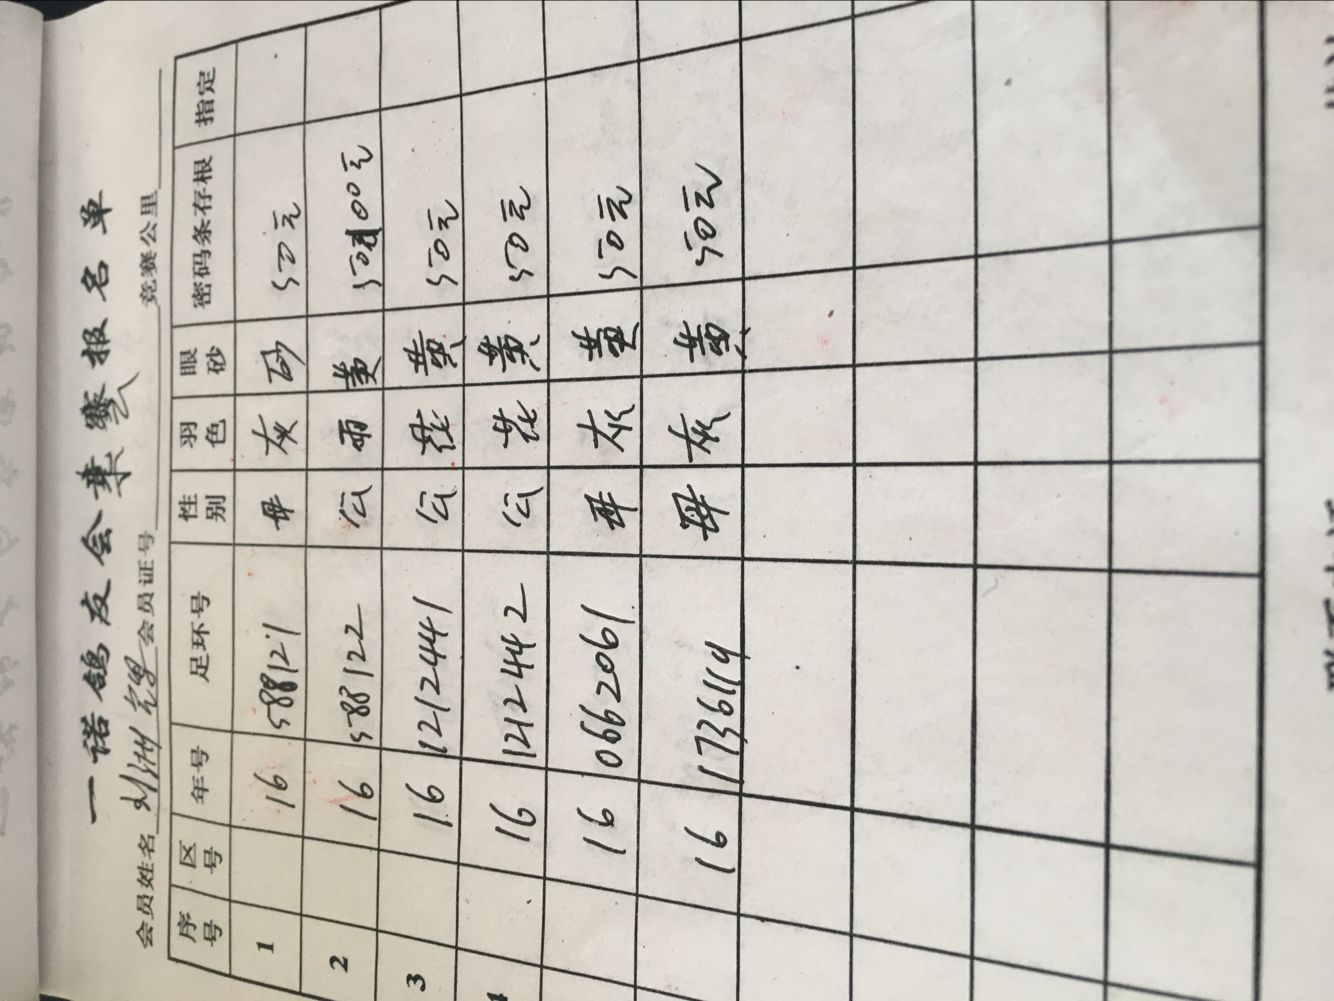 一诺鸽友会 赛报名单
会员姓名 会员证号 竞赛公里
序号 区号 年号 足环号 性别 羽色 眼砂 密码条存根 指定
1 16 588121 母 灰 砂 50元
2 16 588122 公 雨 黄 50 100元
3 16 1212441 公 花 黄 50元
16 1212442 公 花 黄 50元
16 0662061 母 灰 黄 50元
16 1736119 母 灰 黄 50元